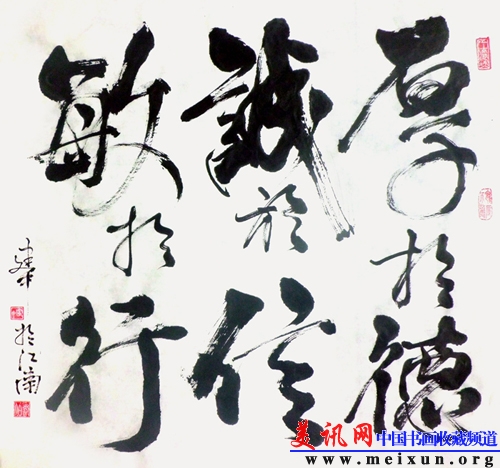 厚於德
誠於信
敏於行
於江蘭
美讯网
中国书画收藏频道
www.meixun.org